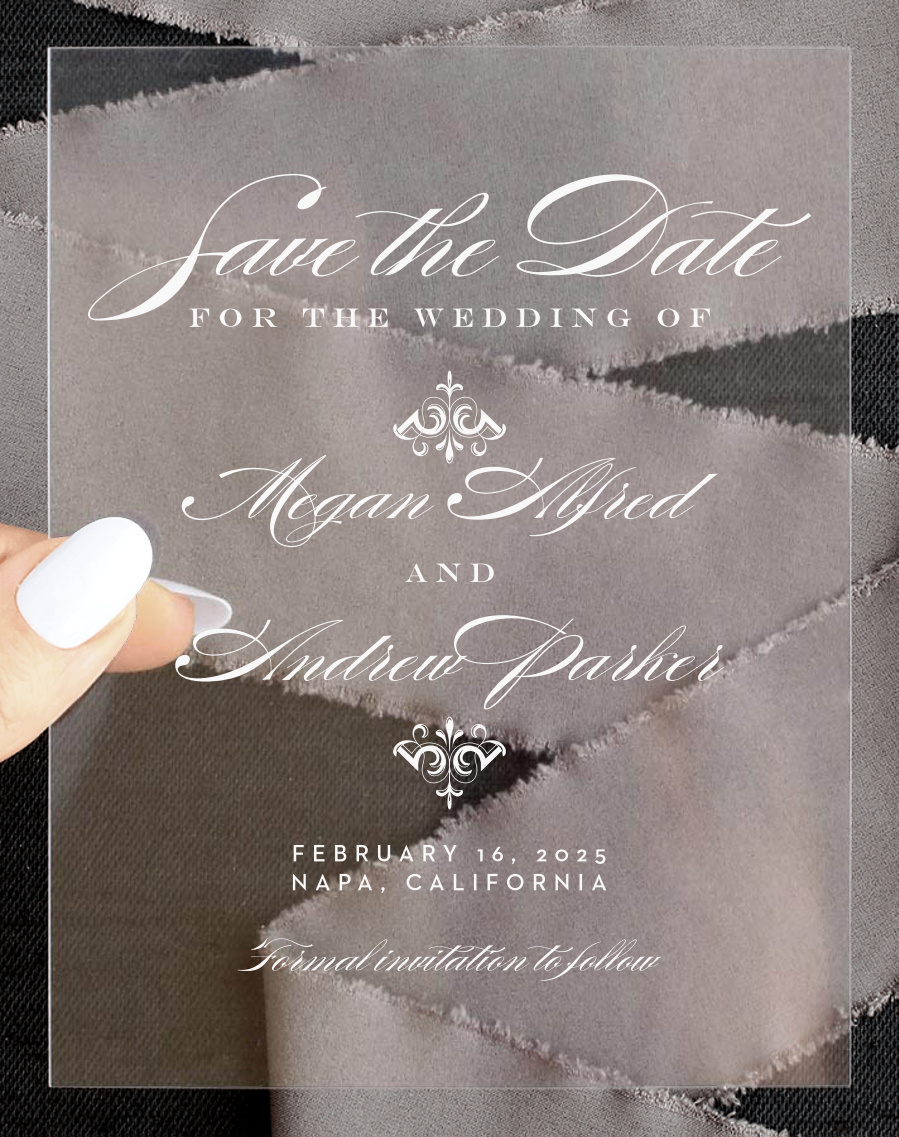 Save the Date
FOR THE WEDDING OF
Megan Alfred
AND
Andrew Parker
FEBRUARY 16, 2025
NAPA, CALIFORNIA
Formal invitation to follow